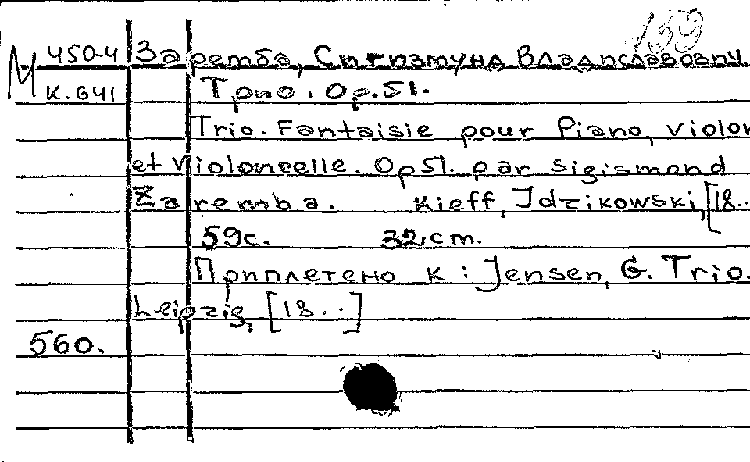 159
М 450-4 Заремба, Сигизмунд Владиславович
К.641 Трио. Op.51.
Trio. Fantaisie pour Piano, violon
et Violoncelle. Op 51. par Sigismond
Zaremba. Kieff, Idzikowski, [18..
59с. 32 cm.
Приплетено к: Jensen, G. Trio.
Leipzig, [18..]
560.